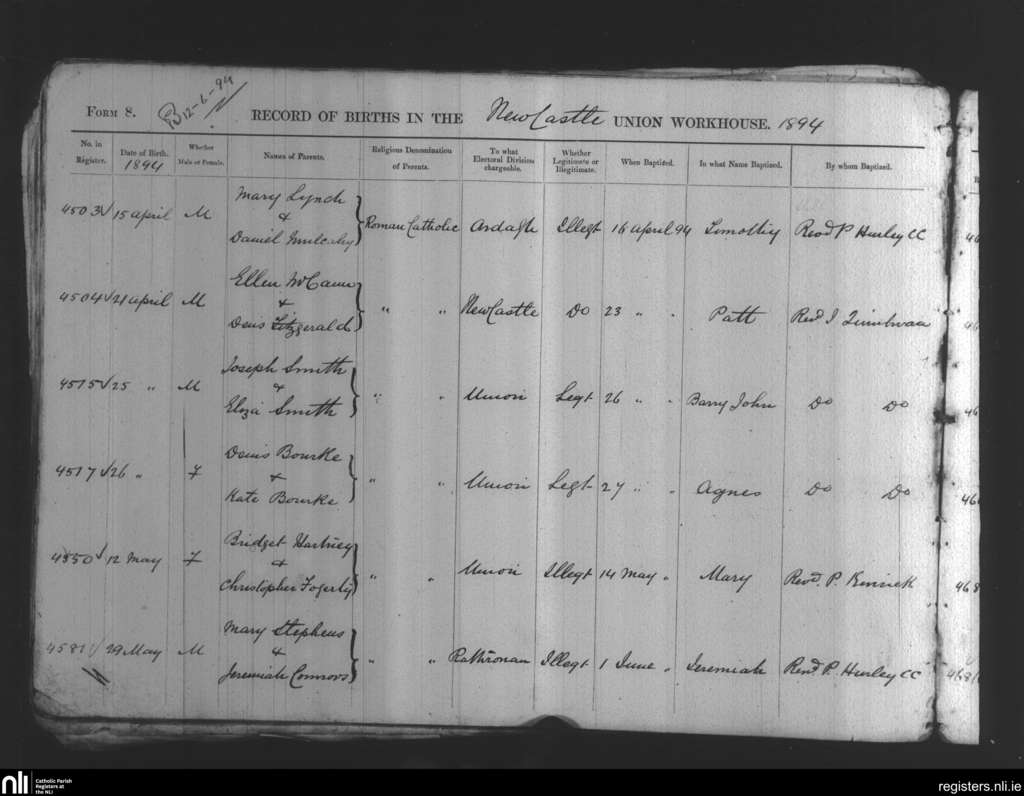 Form 8. B 12-6-94
RECORD OF BIRTHS IN THE NewCastle UNION WORKHOUSE. 1894
No. in Register. Date of Birth. 1894 Whether Male or Female. Names of Parents. Religious Denomination of Parents. To what Electoral Division chargeable. Whether Legitimate or Illegitimate. When Baptized. In what Name Baptized. By whom Baptized.
Mary Lynch
4503 √ 15 April M & Roman Catholic Ardagh Illegt 16 April 94 Timothy Revd P Hurley CC
Daniel Mulcahy
Ellen McCann
4504 √ 21 April M & " " NewCastle Do 23 " " Patt Revd J
Denis Fitzgerald
Joseph Smith
4515 √ 25 " M & " " Union Legt 26 " " Barry John Do Do
Eliza Smith
Denis Bourke
4517 √ 26 " F & " " Union Legt 27 " " Agnes Do Do
Kate Bourke
Bridget Hartney
4550 √ 12 May F & " " Union Illegt 14 May " Mary Revd. P.
Christopher Fogerty
Mary Stephens
4581 √ 29 May M & " " Rathronan Illegt 1 June " Jeremiah Revd. P. Hurley CC
Jeremiah Connors
nli
Catholic Parish
Registers at
the NLI
registers.nli.ie